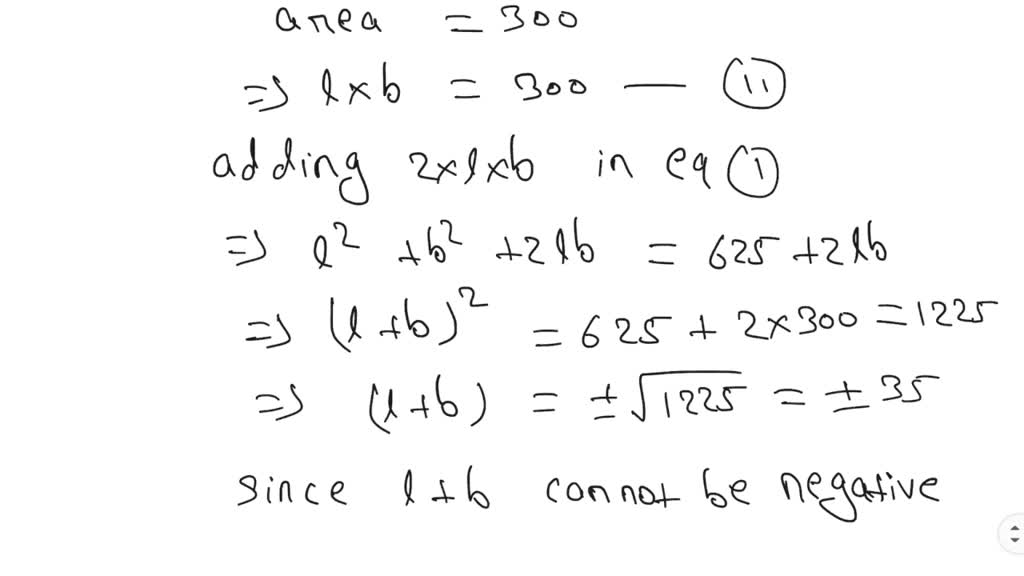 area = 300
=> l×b = 300 — (ii)
adding 2×l×b in eq (i)
=> l² + b² + 2lb = 625 + 2lb
=> (l+b)² = 625 + 2×300 = 1225
=> (l+b) = ±√1225 = ± 35
since l+b cannot be negative